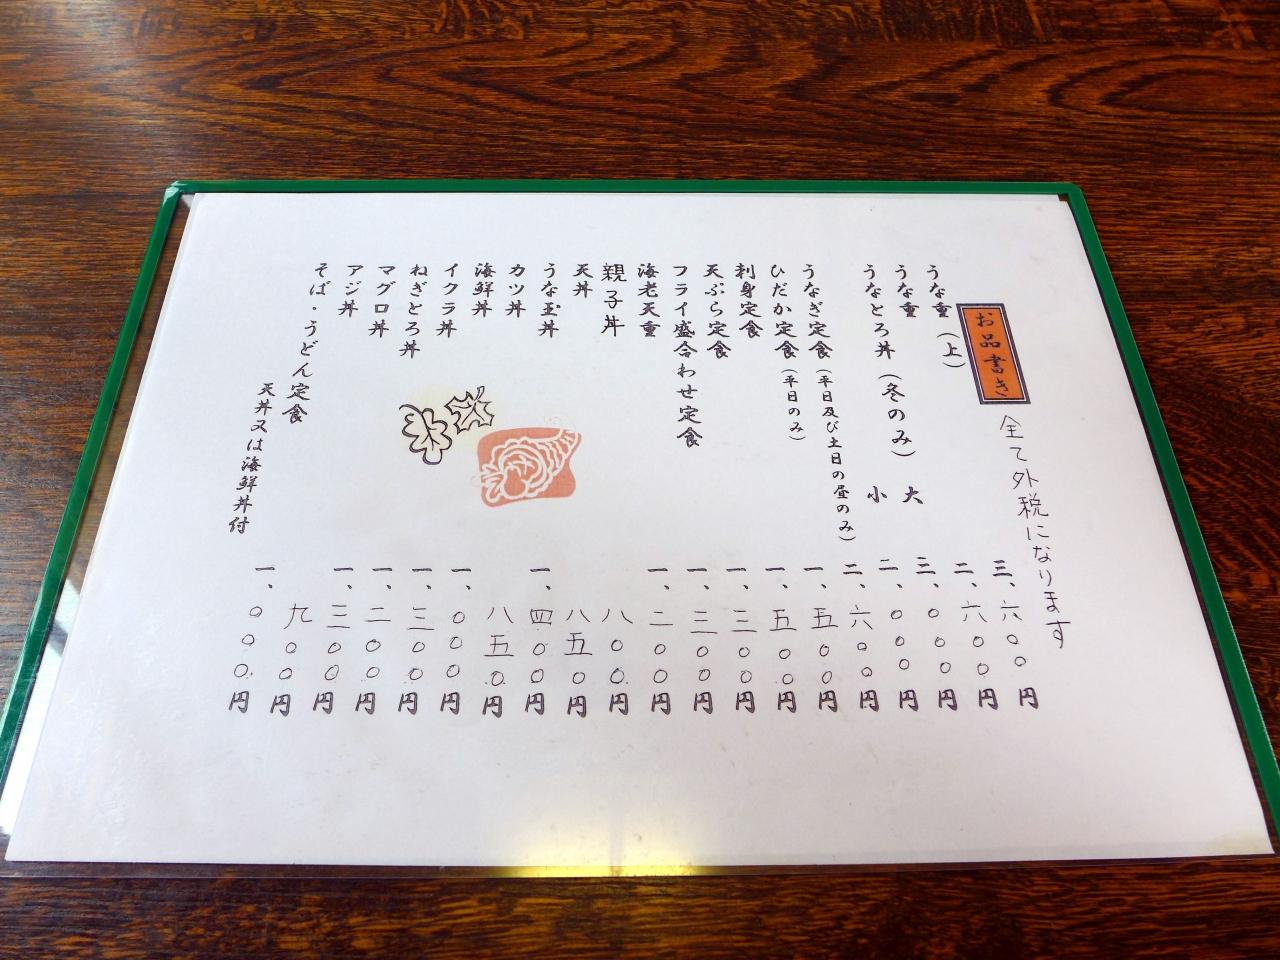 お品書き
全て外税になります
うな重（上） 三、六〇〇円
うな重 二、六〇〇円
うなとろ丼（冬のみ） 大 三、〇〇〇円
小 二、〇〇〇円
うなぎ定食（平日及び土日の昼のみ） 二、六〇〇円
ひだか定食（平日のみ） 一、五〇〇円
刺身定食 一、五〇〇円
天ぷら定食 一、三〇〇円
フライ盛合わせ定食 一、三〇〇円
海老天重 一、二〇〇円
親子丼 八〇〇円
天丼 八五〇円
うな玉丼 一、四〇〇円
カツ丼 八五〇円
海鮮丼 一、〇〇〇円
イクラ丼 一、三〇〇円
ねぎとろ丼 一、二〇〇円
マグロ丼 一、三〇〇円
アジ丼 九〇〇円
そば・うどん定食 一、〇〇〇円
天丼又は海鮮丼付